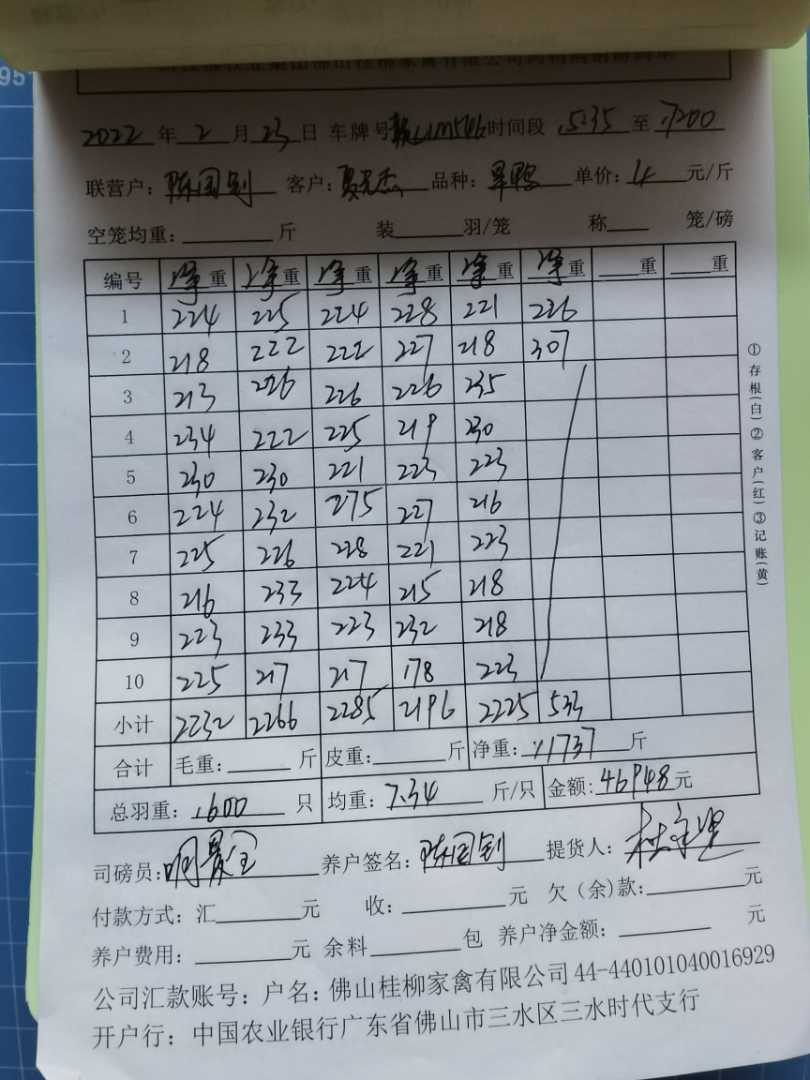 佛山桂柳家禽有限公司
2022 年 2 月 23 日 车牌号 时间段 1535 至 1700
联营户：陈国钊 客户： 品种： 单价：4 元/斤
空笼均重： 斤 装 羽/笼 称 笼/磅
编号 净重 净重 净重 净重 净重 净重 重 重
1 224 225 224 228 221 226
2 218 222 222 227 218 307
3 213 226 226 226 235
4 234 222 225 219 230
5 230 230 221 223 223
6 224 232 275 227 216
7 225 226 228 221 223
8 216 233 224 215 218
9 223 233 223 232 218
10 225 217 217 178 223
小计 2232 2266 2285 2196 2225 533
合计 毛重： 斤 皮重： 斤 净重：11737 斤
总羽重：1600 只 均重：7.34 斤/只 金额：46948元
司磅员： 养户签名：陈国钊 提货人：
付款方式：汇 元 收： 元 欠（余）款： 元
养户费用： 元 余料 包 养户净金额： 元
公司汇款账号：户名：佛山桂柳家禽有限公司 44-440101040016929
开户行：中国农业银行广东省佛山市三水区三水时代支行
①存根(白)②客户(红)③记账(黄)